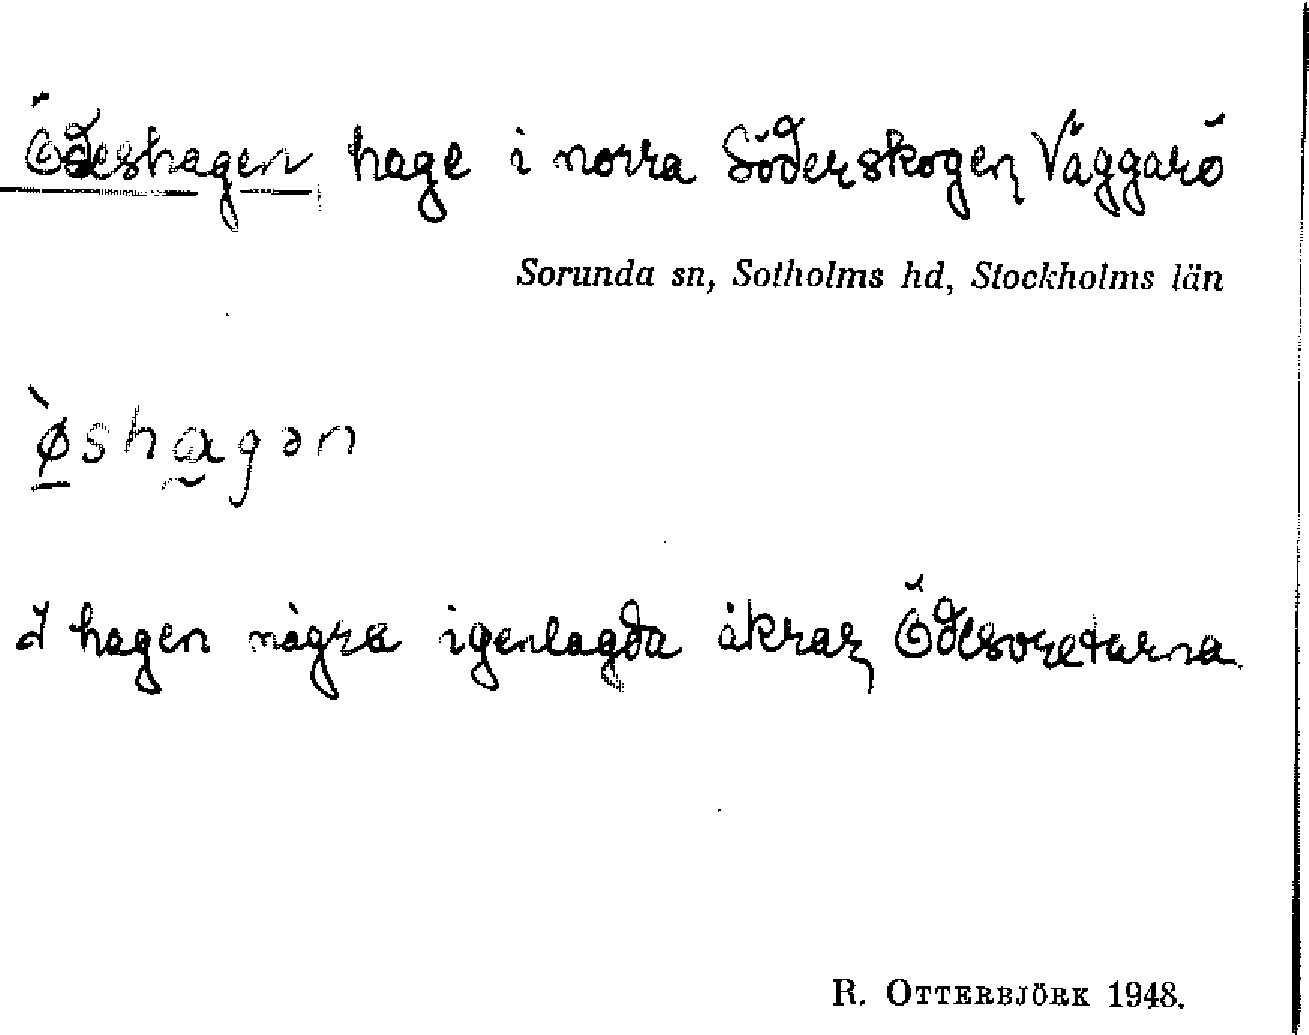 Ödeshagen hage i norra Söderskogen, Väggarö
Sorunda sn, Sotholms hd, Stockholms län
ø̀shagən
I hagen några igenlagda åkrar, Ödesoretarna.
R. OTTERBJÖRK 1948.